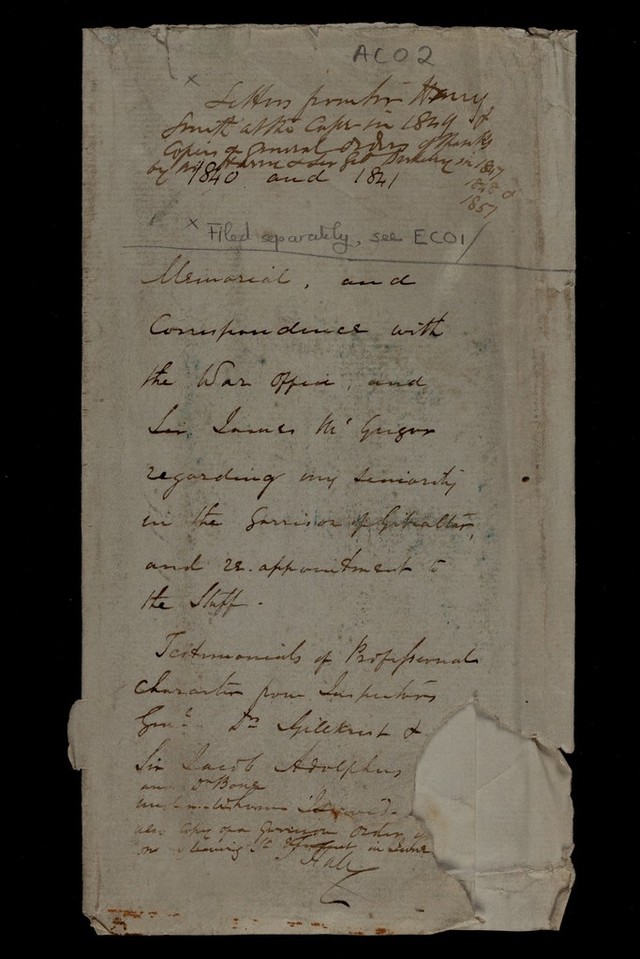 ACO2
x
Letters from Sir Harry
Smith at the Cape in 1849 &
Copies of General Orders of thanks
by Sir Harry & Sir Geo Berkeley in 1847
1840 and 1841
1848 &
1857
x Filed separately, see ECO1/
Memorial, and
Correspondence with
the War Office, and
Sir James McGrigor
regarding my seniority
in the Garrison of Gibraltar,
and re-appointment to
the Staff.
Testimonials of Professional
Character from Inspectors
Genl Dr Gillkrest &
Sir Jacob Adolphus
and Dr Bone
whom I served
also Copy of a Garrison Order
on leaving St in June
Hall